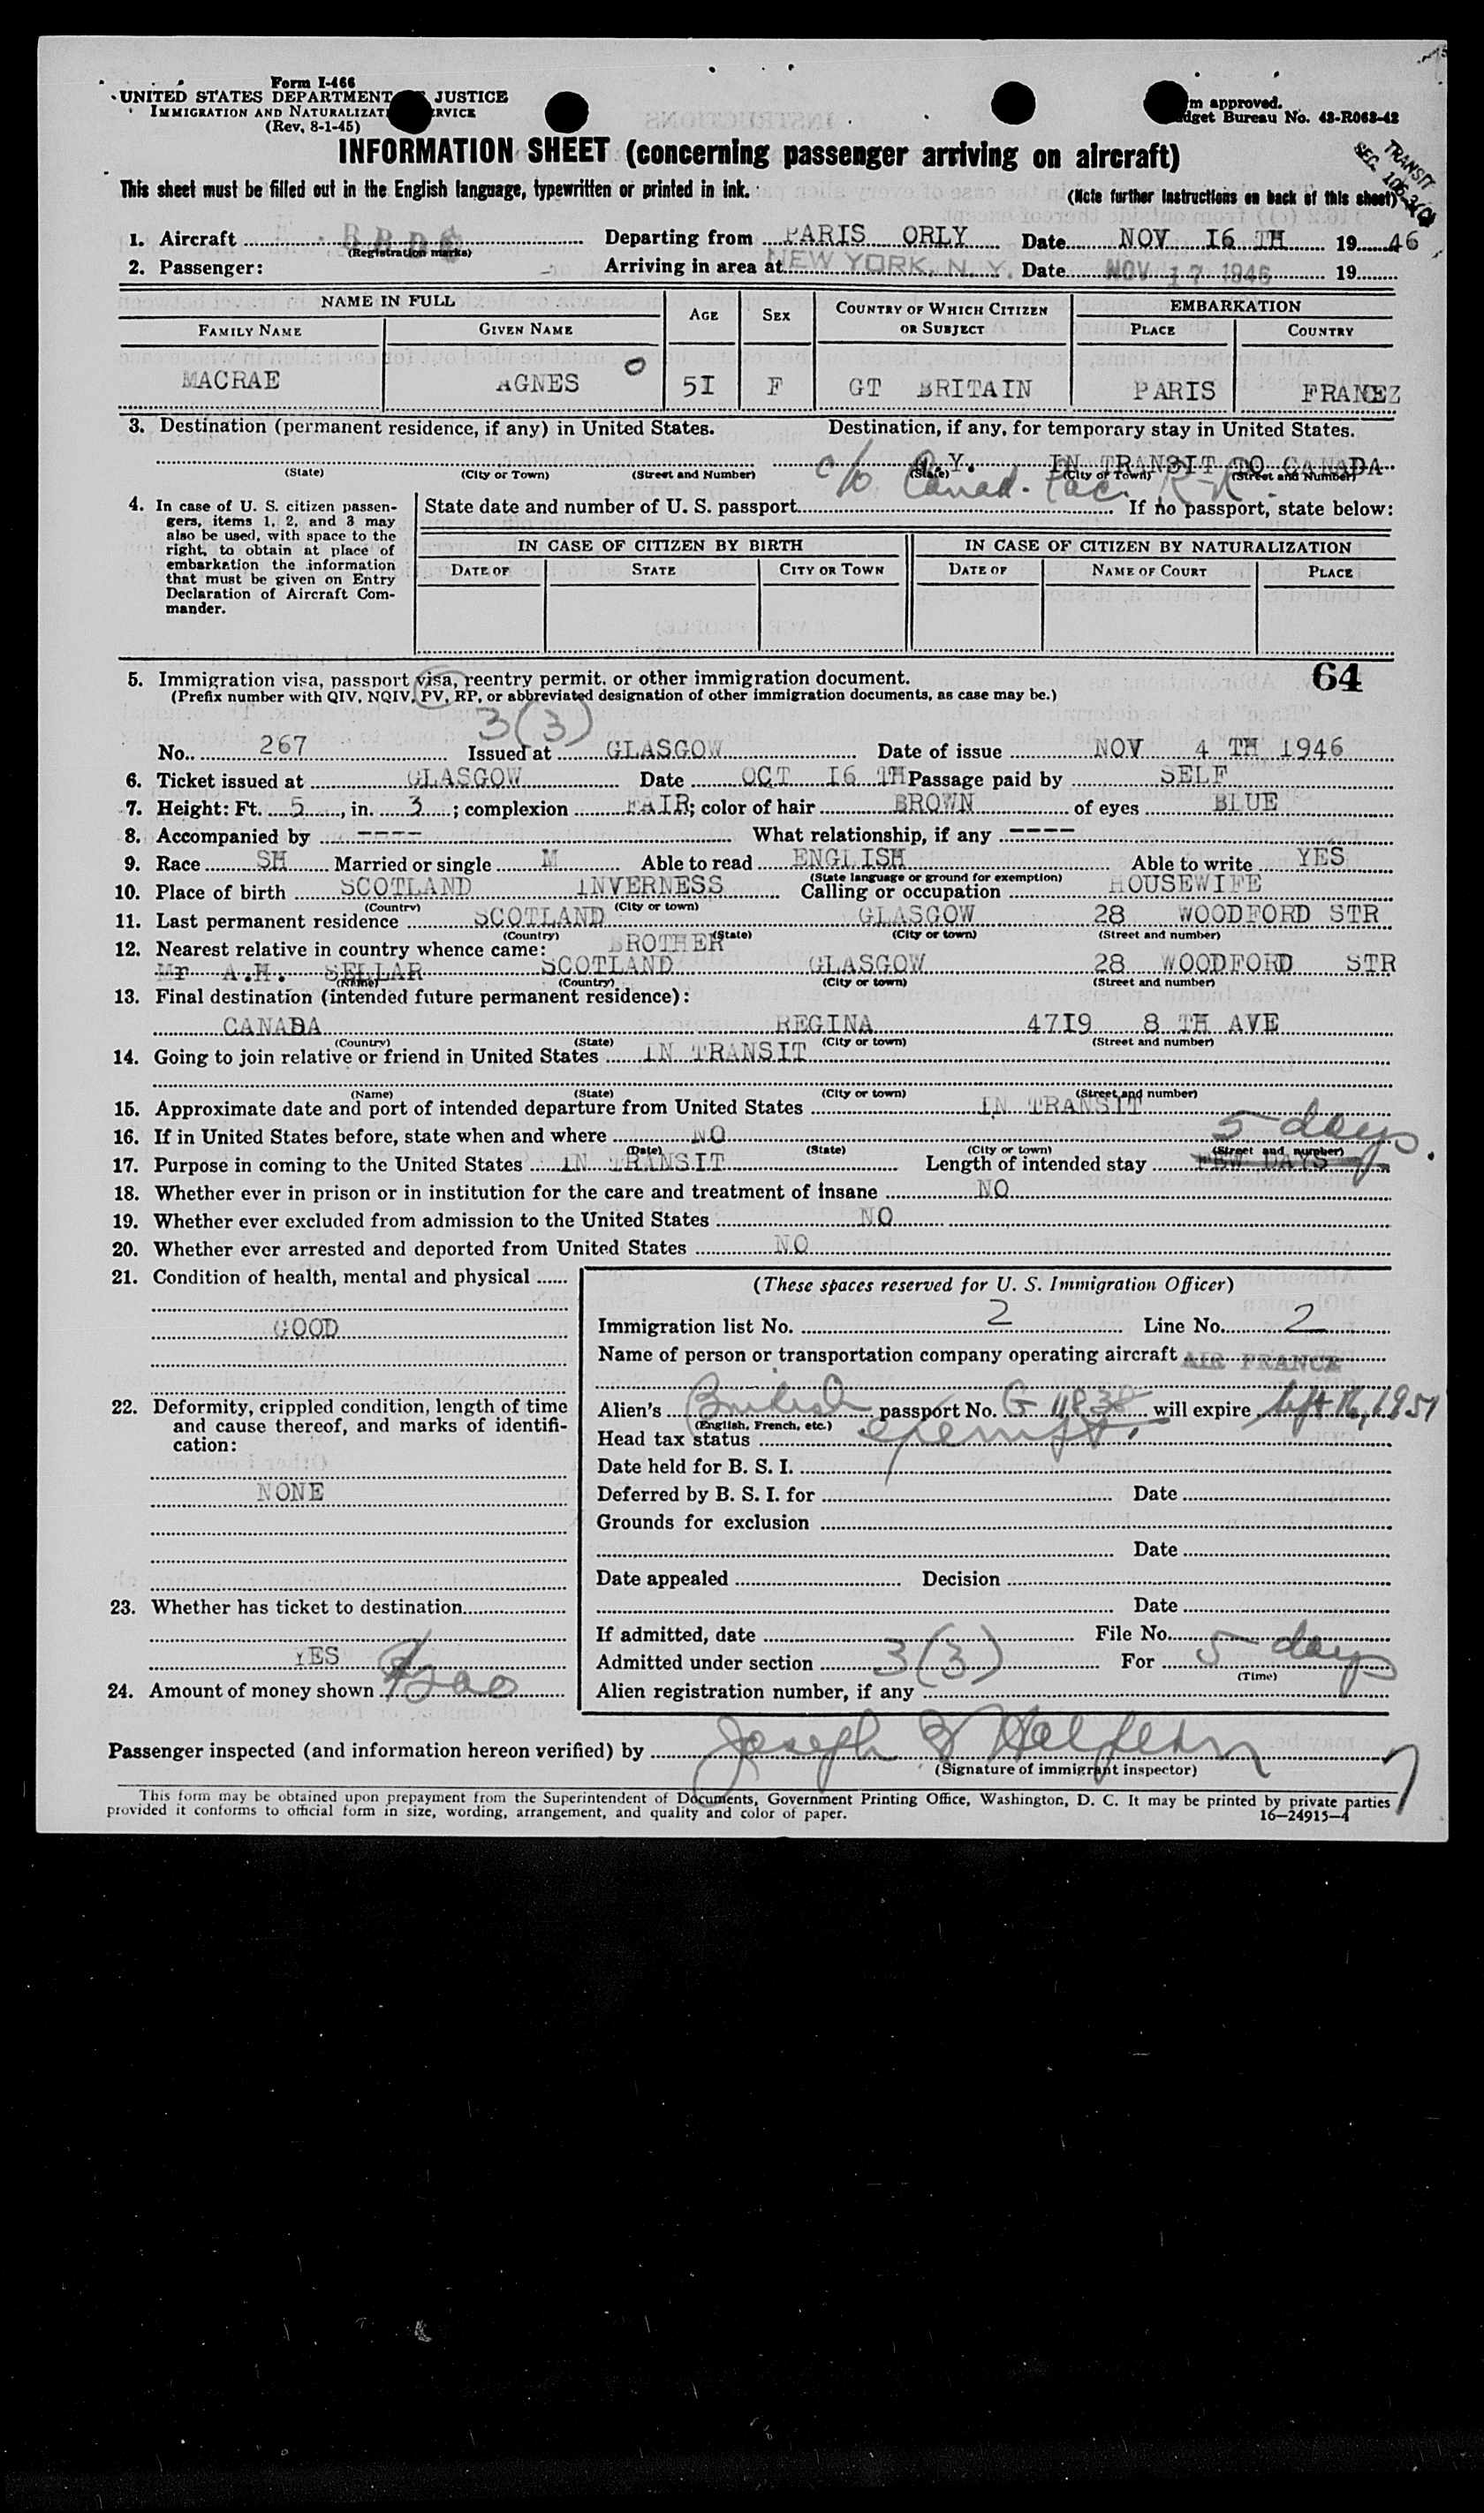 Form I-466
UNITED STATES DEPARTMENT JUSTICE
IMMIGRATION AND NATURALIZATI RVICE
(Rev. 8-1-45)
m approved.
dget Bureau No. 43-R063-42
INFORMATION SHEET (concerning passenger arriving on aircraft)
TRANSIT
SEC.
This sheet must be filled out in the English language, typewritten or printed in ink. (Note further instructions on back of this sheet)
1. Aircraft Departing from PARIS ORLY Date NOV I6 TH 19 46
(Registration marks)
2. Passenger: Arriving in area at NEW YORK, N. Y. Date NOV 17 1946 19
NAME IN FULL AGE SEX COUNTRY OF WHICH CITIZEN OR SUBJECT EMBARKATION
FAMILY NAME GIVEN NAME PLACE COUNTRY
MACRAE AGNES 0 5I F GT BRITAIN PARIS FRANEZ
3. Destination (permanent residence, if any) in United States. Destination, if any, for temporary stay in United States.
N.Y. IN TRANSIT TO CANADA
(State) (City or Town) (Street and Number) (State) (City or Town) (Street and Number)
c/o Canad. Pac. R-R.
4. In case of U. S. citizen passengers, items 1, 2, and 3 may also be used, with space to the right, to obtain at place of embarkation the information that must be given on Entry Declaration of Aircraft Commander.
State date and number of U. S. passport If no passport, state below:
IN CASE OF CITIZEN BY BIRTH IN CASE OF CITIZEN BY NATURALIZATION
DATE OF STATE CITY OR TOWN DATE OF NAME OF COURT PLACE
64
5. Immigration visa, passport visa, reentry permit, or other immigration document.
(Prefix number with QIV, NQIV, PV, RP, or abbreviated designation of other immigration documents, as case may be.)
3(3)
No. 267 Issued at GLASGOW Date of issue NOV 4 TH 1946
6. Ticket issued at GLASGOW Date OCT I6 TH Passage paid by SELF
7. Height: Ft. 5, in. 3; complexion FAIR; color of hair BROWN of eyes BLUE
8. Accompanied by ---- What relationship, if any ----
9. Race SH Married or single M Able to read ENGLISH Able to write YES
(State language or ground for exemption)
10. Place of birth SCOTLAND INVERNESS Calling or occupation HOUSEWIFE
(Country) (City or town)
11. Last permanent residence SCOTLAND GLASGOW 28 WOODFORD STR
(Country) (State) (City or town) (Street and number)
12. Nearest relative in country whence came: BROTHER
Mr A.H. SELLAR SCOTLAND GLASGOW 28 WOODFORD STR
(Name) (Country) (City or town) (Street and number)
13. Final destination (intended future permanent residence):
CANADA REGINA 47I9 8 TH AVE
(Country) (State) (City or town) (Street and number)
14. Going to join relative or friend in United States IN TRANSIT
(Name) (State) (City or town) (Street and number)
15. Approximate date and port of intended departure from United States IN TRANSIT
16. If in United States before, state when and where NO
(Date) (State) (City or town) (Street and number)
5 days
17. Purpose in coming to the United States IN TRANSIT Length of intended stay FEW DAYS
18. Whether ever in prison or in institution for the care and treatment of insane NO
19. Whether ever excluded from admission to the United States NO
20. Whether ever arrested and deported from United States NO
21. Condition of health, mental and physical
GOOD
22. Deformity, crippled condition, length of time and cause thereof, and marks of identification:
NONE
23. Whether has ticket to destination
YES
24. Amount of money shown
(These spaces reserved for U. S. Immigration Officer)
Immigration list No. 2 Line No. 2
Name of person or transportation company operating aircraft AIR FRANCE
Alien's British passport No. will expire 1951
(English, French, etc.)
Head tax status exempt.
Date held for B. S. I.
Deferred by B. S. I. for Date
Grounds for exclusion
Date
Date appealed Decision
Date
If admitted, date File No.
Admitted under section 3(3) For 5 days
(Time)
Alien registration number, if any
Passenger inspected (and information hereon verified) by Joseph Halpern
(Signature of immigrant inspector)
This form may be obtained upon prepayment from the Superintendent of Documents, Government Printing Office, Washington, D. C. It may be printed by private parties
provided it conforms to official form in size, wording, arrangement, and quality and color of paper.
16—24915-4